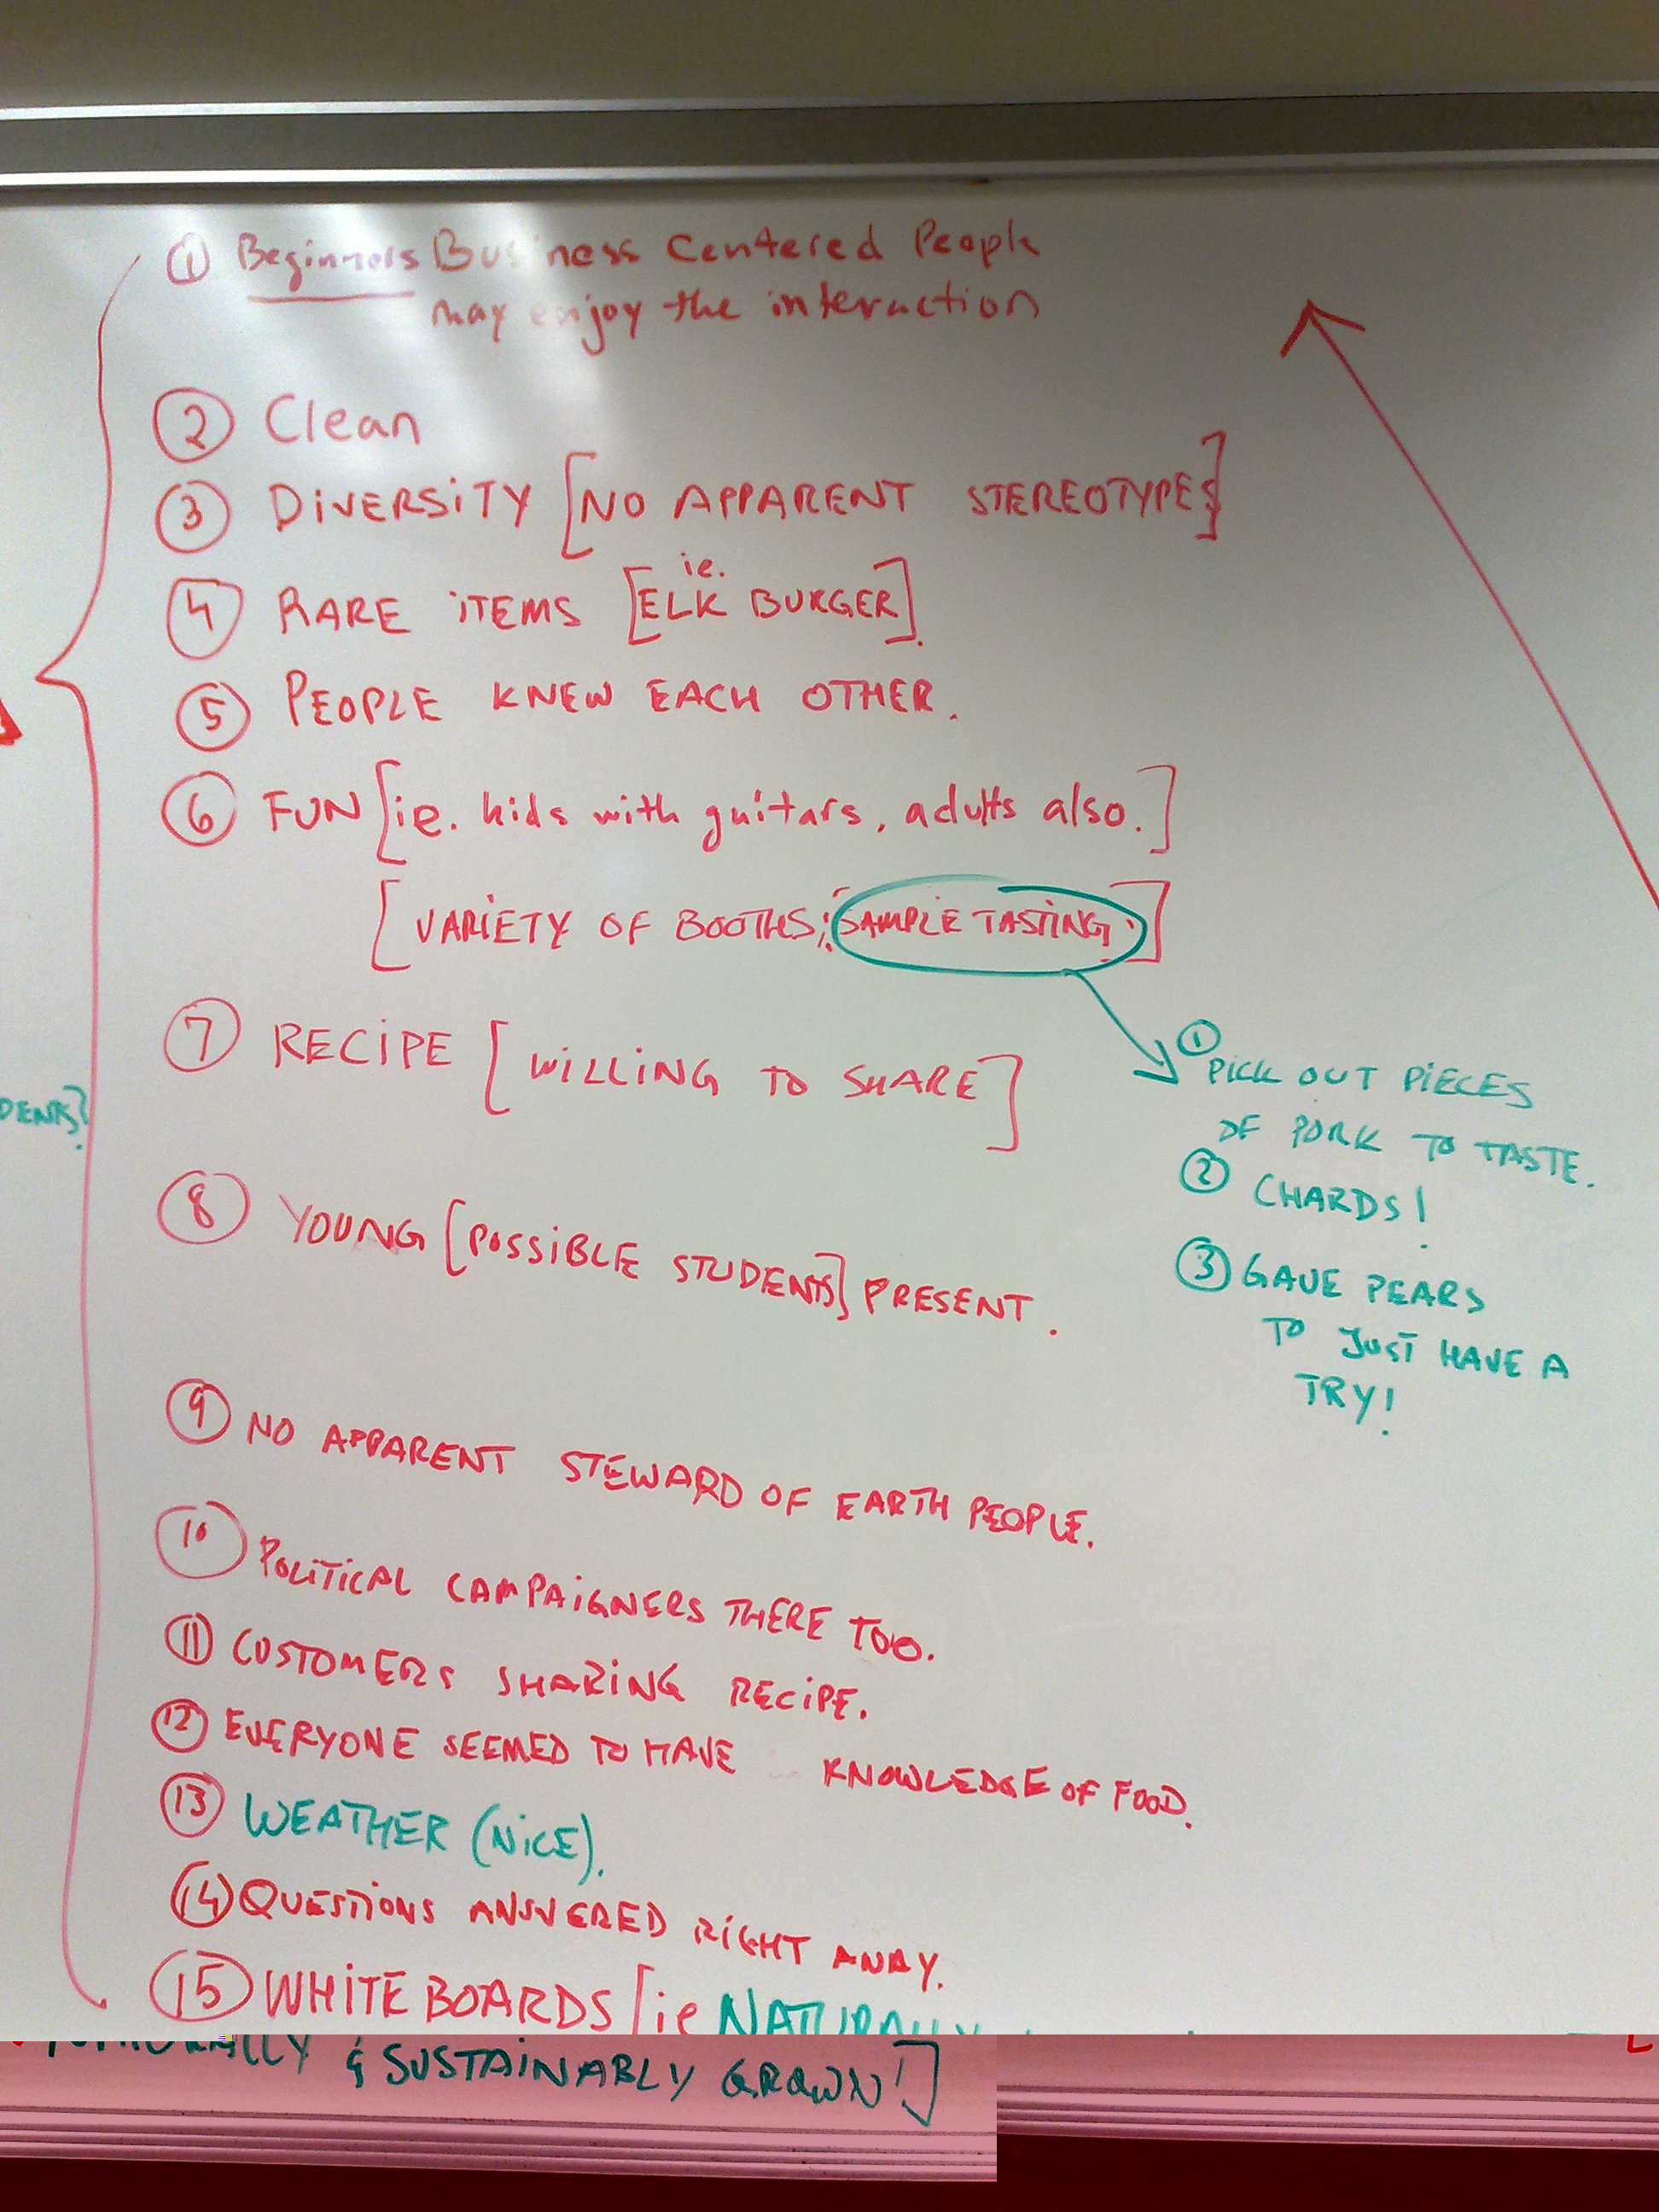 ① Beginners Business Centered People
may enjoy the interaction
② Clean
③ DIVERSITY [NO APPARENT STEREOTYPES]
④ RARE ITEMS [ie. ELK BURGER].
⑤ PEOPLE KNEW EACH OTHER.
⑥ FUN [ie. kids with guitars, adults also.]
[VARIETY OF BOOTHS; SAMPLE TASTING.]
⑦ RECIPE [WILLING TO SHARE]
① PICK OUT PIECES
OF PORK TO TASTE.
② CHARDS!
③ GAVE PEARS
TO JUST HAVE A
TRY!
DENTS?
⑧ YOUNG [POSSIBLE STUDENTS] PRESENT.
⑨ NO APPARENT STEWARD OF EARTH PEOPLE.
⑩ POLITICAL CAMPAIGNERS THERE TOO.
⑪ CUSTOMERS SHARING RECIPE.
⑫ EVERYONE SEEMED TO HAVE KNOWLEDGE OF FOOD.
⑬ WEATHER (NICE).
⑭ QUESTIONS ANSWERED RIGHT AWAY.
⑮ WHITE BOARDS [ie NATURALLY
& SUSTAINABLY GROWN!]